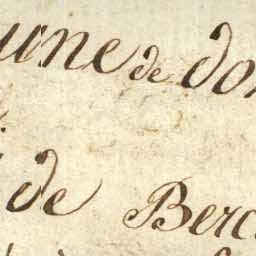 une de don
de Berc